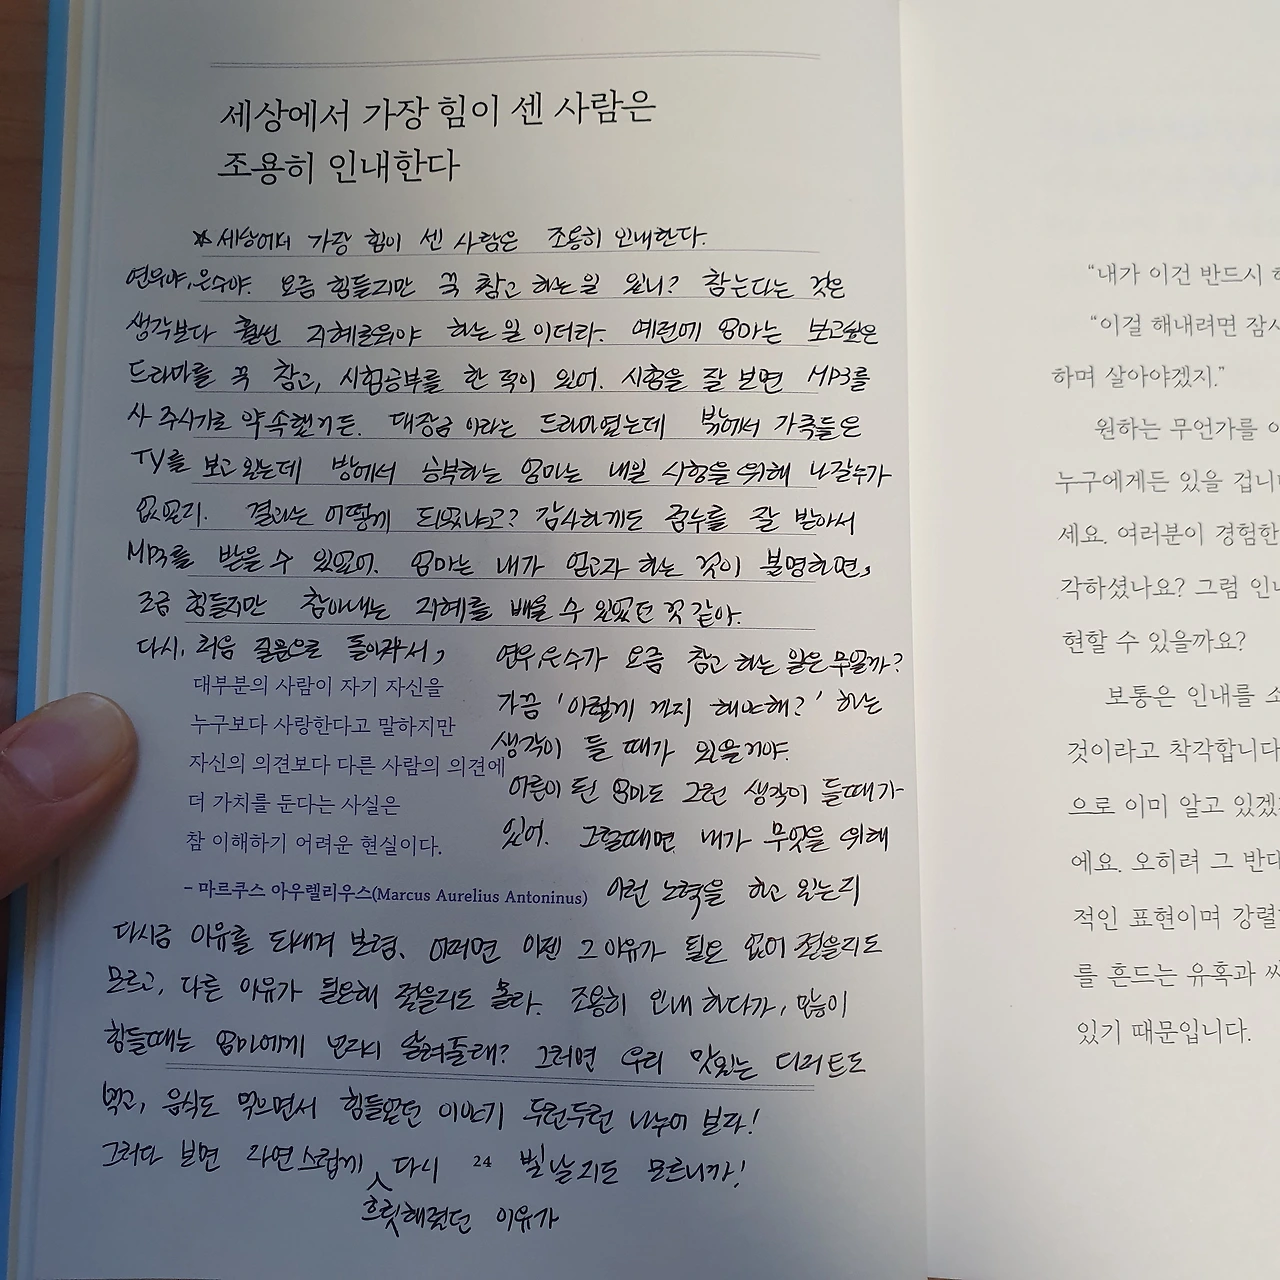 세상에서 가장 힘이 센 사람은
조용히 인내한다
☆ 세상에서 가장 힘이 센 사람은 조용히 인내한다.
연우야, 은수야. 요즘 힘들지만 꾹 참고 하는 일 있니? 참는다는 것은
생각보다 훨씬 지혜로워야 하는 일이더라. 예전에 엄마는 보고싶은
드라마를 꾹 참고, 시험공부를 한 적이 있어. 시험을 잘 보면 MP3를
사 주시기로 약속했거든. 대장금 이라는 드라마였는데 밖에서 가족들은
TV를 보고 있는데 방에서 공부하는 엄마는 내일 시험을 위해 나갈수가
없었지. 결과는 어떻게 되었냐고? 감사하게도 점수를 잘 받아서
MP3를 받을 수 있었어. 엄마는 내가 얻고자 하는 것이 분명하면,
조금 힘들지만 참아내는 지혜를 배울 수 있었던 것 같아.
다시, 처음 질문으로 돌아와서,
연우,은수가 요즘 참고 하는 일은 무얼까?
가끔 '이렇게 까지 해야해?' 하는
생각이 들 때가 있을거야.
어른이 된 엄마도 그런 생각이 들때가
있어. 그럴때면 내가 무엇을 위해
이런 노력을 하고 있는지
대부분의 사람이 자기 자신을
누구보다 사랑한다고 말하지만
자신의 의견보다 다른 사람의 의견에
더 가치를 둔다는 사실은
참 이해하기 어려운 현실이다.
- 마르쿠스 아우렐리우스(Marcus Aurelius Antoninus)
다시금 이유를 되새겨 보렴. 어쩌면 이젠 그 이유가 필요 없어 졌을지도
모르고, 다른 이유가 필요해 졌을지도 몰라. 조용히 인내 하다가, 많이
힘들때는 엄마에게 반드시 알려줄래? 그러면 우리 맛있는 디저트도
먹고, 음식도 먹으면서 힘들었던 이야기 두런두런 나누어 보자!
그러다 보면 자연스럽게 다시 빛날지도 모르니까!
흐릿해졌던 이유가
24
"내가 이건 반드시
"이걸 해내려면 잠시
하며 살아야겠지."
원하는 무언가를
누구에게든 있을 겁니
세요. 여러분이 경험한
각하셨나요? 그럼 인
현할 수 있을까요?
보통은 인내를
것이라고 착각합니다
으로 이미 알고 있겠
에요. 오히려 그 반대
적인 표현이며 강렬
를 흔드는 유혹과
있기 때문입니다.